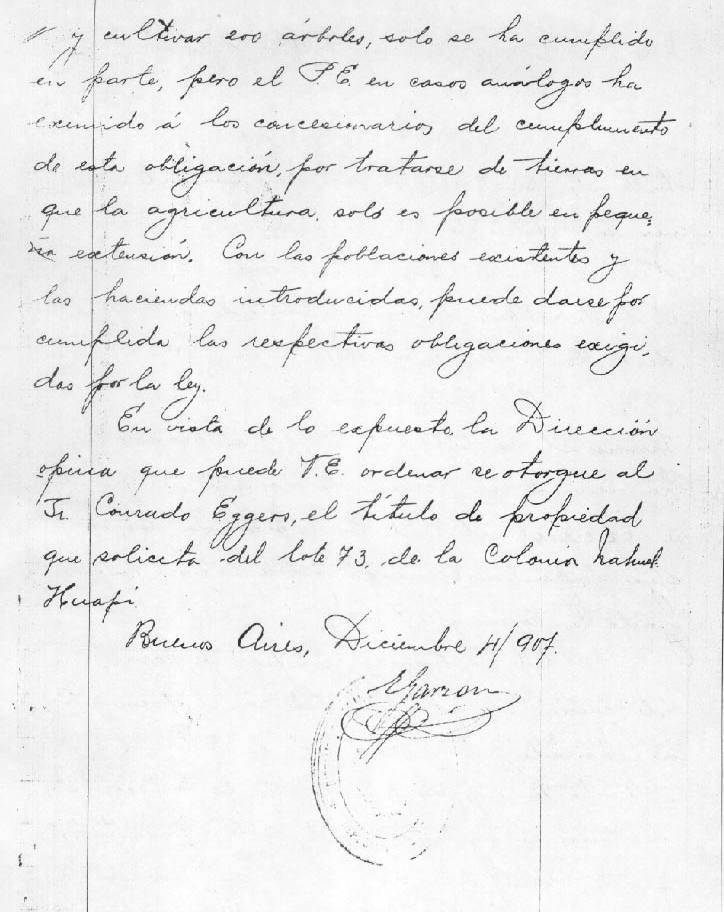 y cultivar 200 árboles, solo se ha cumplido
en parte, pero el P.E. en casos análogos ha
eximido á los concesionarios del cumplimento
de esta obligación, por tratarse de tierras en
que la agricultura, solo es posible en peque,
ña extensión. Con las poblaciones existentes y
las haciendas introducidas, puede darse por
cumplida las respectivas obligaciones exigi,
das por la ley.
En vista de lo expuesto, la Dirección
opina que puede V.E. ordenar se otorgue al
Sr. Conrado Eggers, el título de propiedad
que solicita del lote 73, de la Colonia Nahuel
Huapi
Buenos Aires, Diciembre 4/907.